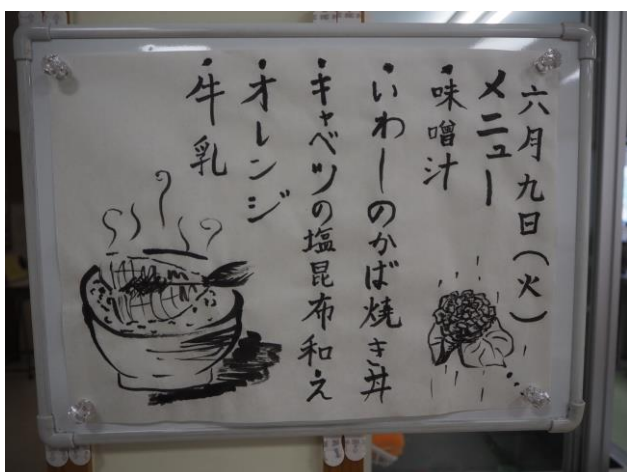 六月九日（火）
メニュー
・味噌汁
・いわしのかば焼き丼
・キャベツの塩昆布和え
・オレンジ
・牛乳